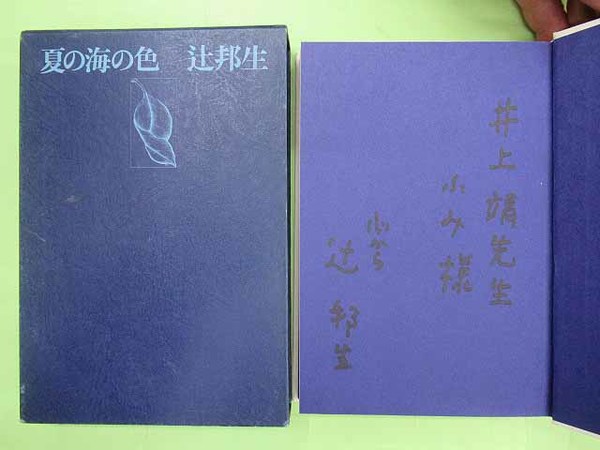 夏の海の色 辻邦生
井上靖先生
ふみ様
心から
辻邦生